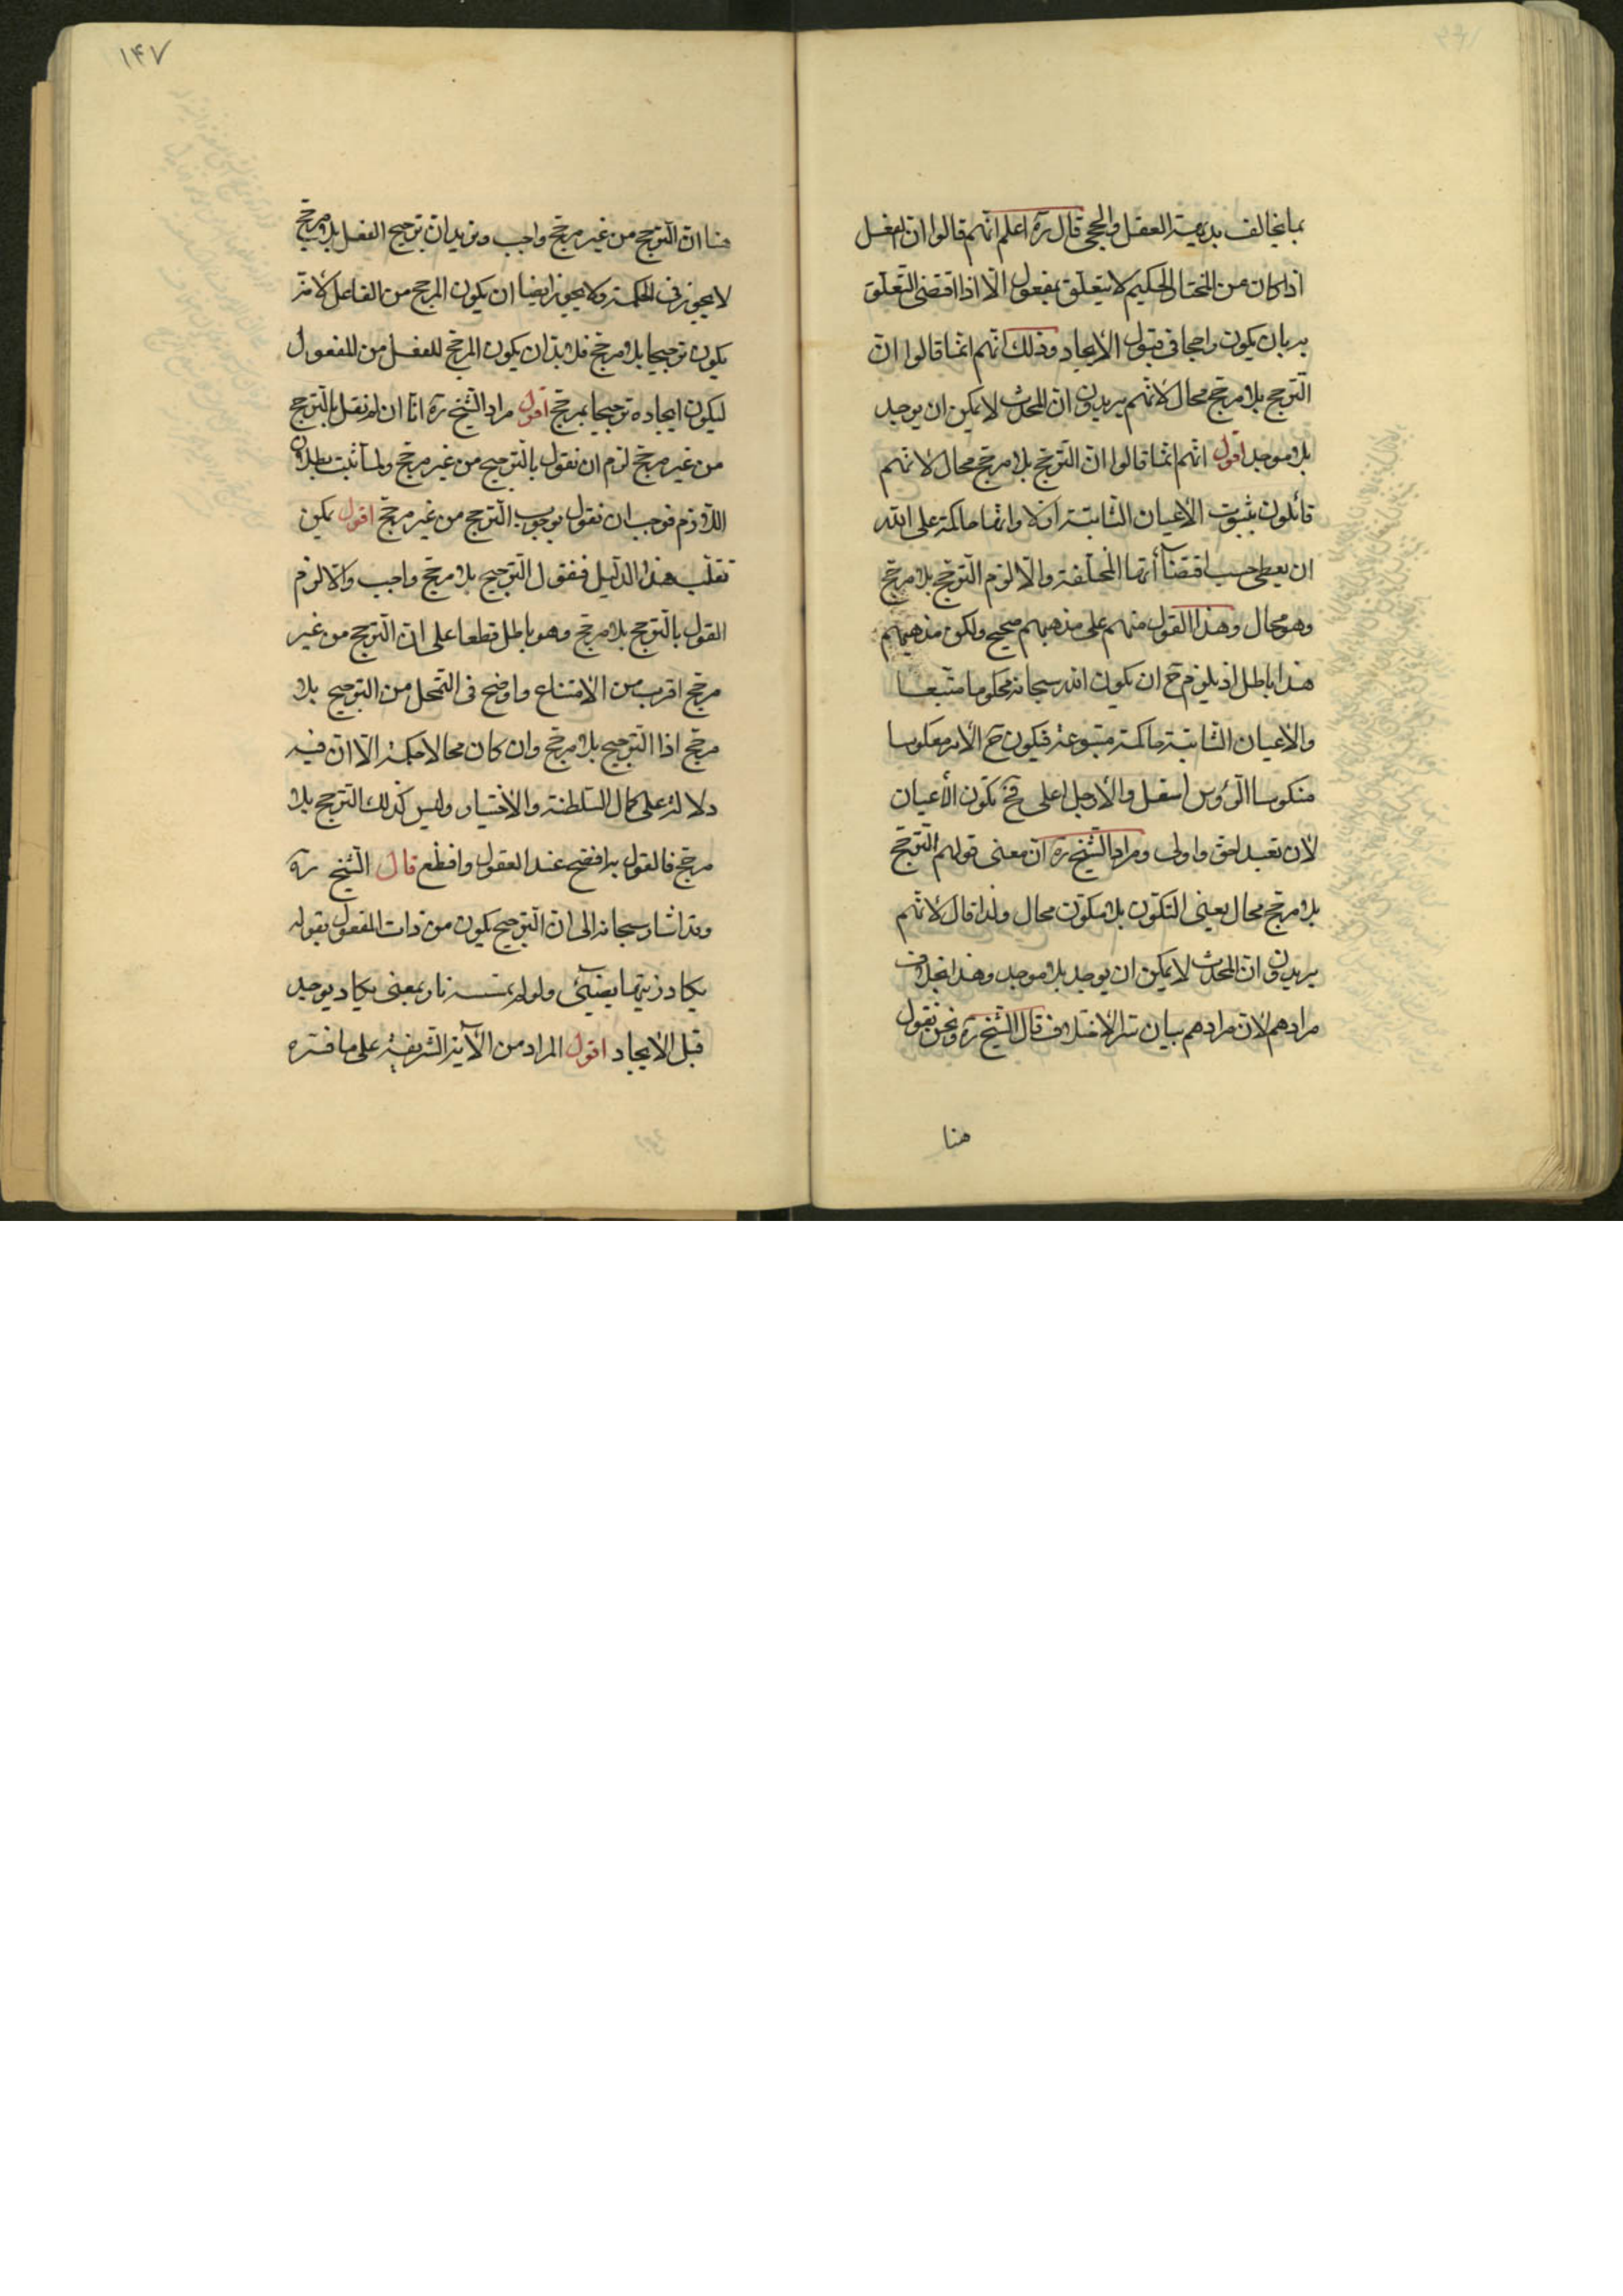 بما يخالف بديهة العقل والحجى قال ره اعلم انهم قالوا ان الفعل
اذا كان من المختار الحكيم لا يتعلق بمفعول الا اذا اقتضى التعلق
به بان يكون راجحا فى قبول الايجاد وذلك انهم انما قالوا ان
الترجح بلا مرجح محال لانهم يريدون ان المحدث لا يمكن ان يوجد
بلا موجد اقول انهم انما قالوا ان الترجح بلا مرجح محال لانهم
قائلون بثبوت الاعيان الثابتة ازلا وانها حاكمة على الله
ان يعطى حسب اقتضاآتها المختلفة والا لزم الترجح بلا مرجح
وهو محال وهذا القول منهم على مذهبهم صحيح ولكن مذهبهم
هذا باطل اذ يلزم ح ان يكون الله سبحانه محكوما متبعا
والاعيان الثابتة حاكمة متبوعة فيكون ح الامر معكوسا
منكوسا الرؤس اسفل والارجل اعلى فح تكون الأعيان
لان تعبد احق واولى ومراد الشيخ ره ان معنى قولهم الترجح
بلا مرجح محال يعنى التكون بلا مكون محال ولذا قال لانهم
يريدون ان المحدث لا يمكن ان يوجد بلا موجد وهذا بخلاف
مرادهم لان مرادهم بيان سر الاختلاف قال الشيخ ره ونحن نقول
هنا
١۴٧
هنا ان الترجح من غير مرجح واجب ونريد ان ترجيح الفعل بلا مرجح
لا يجوز فى الحكمة ولا يجوز ايضا ان يكون المرجح من الفاعل لانه
يكون ترجيحا بلا مرجح فلا بد ان يكون المرجح للفعل من المفعول
ليكون ايجاده ترجيحا بمرجح اقول مراد الشيخ ره انا ان لم نقل بالترجح
من غير مرجح لزم ان نقول بالترجيح من غير مرجح ولما ثبت بطلان
اللازم فوجب ان نقول بوجوب الترجح من غير مرجح اقول يمكن
تقلب هذا الدليل فنقول الترجيح بلا مرجح واجب والا لزم
القول بالترجح بلا مرجح وهو باطل قطعا على ان الترجح من غير
مرجح اقرب من الامتناع واوضح فى التمحل من الترجيح بلا
مرجح اذ الترجيح بلا مرجح وان كان محالا حكمة الا ان فيه
دلالة على كمال السلطنة والاختيار وليس كذلك الترجح بلا
مرجح فالقول به افضح عند العقول وافظع قال الشيخ ره
وقد اشار سبحانه الى ان الترجيح يكون من ذات المفعول بقوله
يكاد زيتها يضيئ ولو لم تمسسه نار بمعنى يكاد يوجد
قبل الايجاد اقول المراد من الآية الشريفة على ما فسره